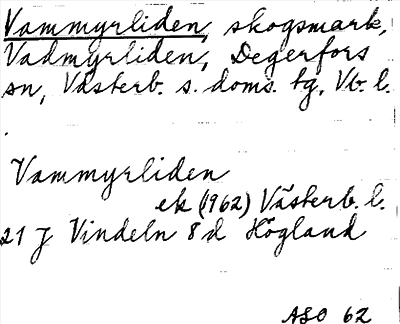 Vammyrliden, skogsmark,
Vadmyrliden, Degerfors
sn, Västerb. s. doms. tg, Vb. l.
Vammyrliden
ek (1962) Västerb. l.
21 J Vindeln 8d Högland
ASO 62